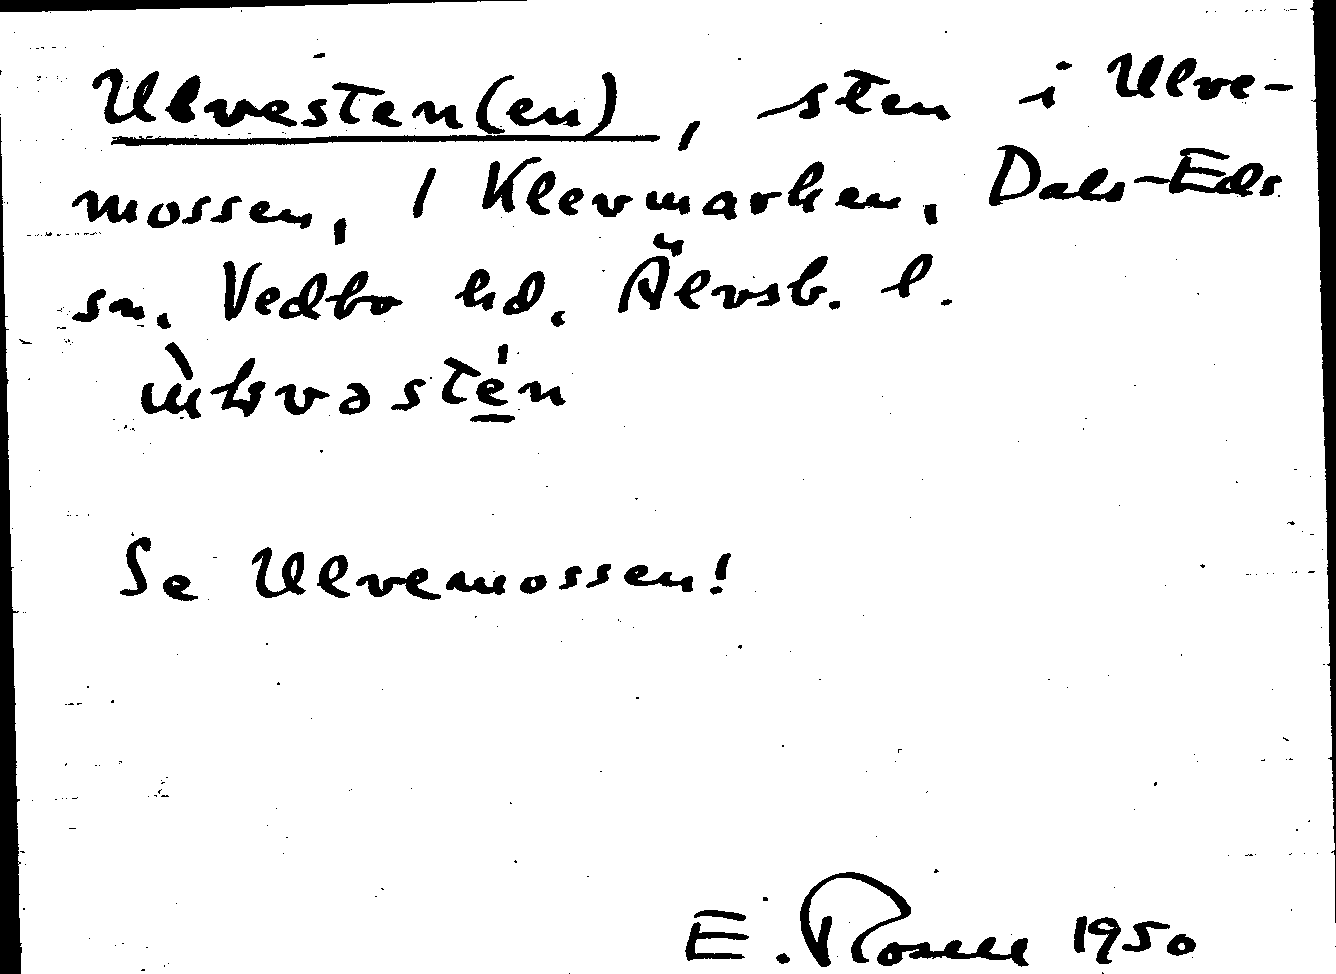 Ulvesten(en), sten i Ulve-
mossen, 1 Klevmarken, Dals-Eds
sn, Vedbo hd, Älvsb. l.
Se Ulvemossen!
E. Rosell 1950